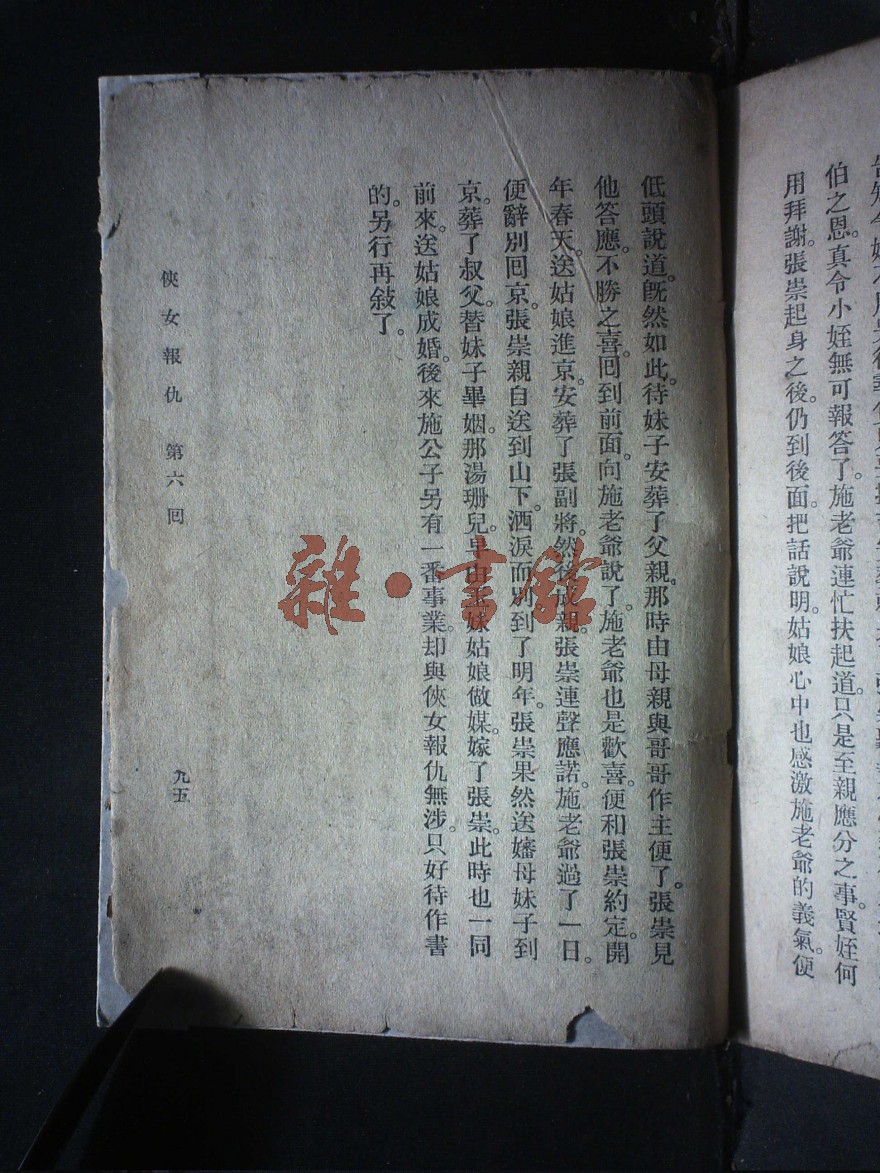 伯之恩。真令小姪無可報答了。施老爺連忙扶起道。只是至親應分之事。賢姪何
用拜謝。張崇起身之後。仍到後面。把話說明。姑娘心中也感激施老爺的義氣。便
低頭說道。旣然如此。待妹子安葬了父親。那時由母親與哥哥作主便了。張崇見
他答應。不勝之喜。囘到前面。向施老爺說了。施老爺也是歡喜。便和張崇約定。開
年春天。送姑娘進京。安葬了張副將。然後成親。張崇連聲應諾。施老爺過了一日。
便辭別囘京。張崇親自送到山下。洒淚而別。到了明年。張崇果然送嬸母妹子到
京。葬了叔父。替妹子畢姻。那湯珊兒。早由妹姑娘做媒。嫁了張崇。此時也一同
前來。送姑娘成婚。後來施公子另有一番事業。却與俠女報仇無涉。只好待作書
的。另行再敍了。
俠女報仇 第六囘
九五
雜·書館